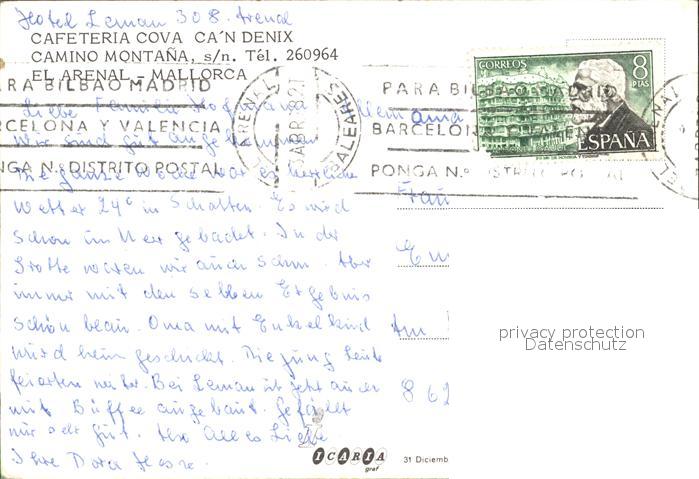 Hotel Leman 308. Arenal
CAFETERIA COVA CA'N DENIX
CAMINO MONTAÑA, s/n. Tél. 260964
EL ARENAL - MALLORCA
CORREOS
8
PTAS
ESPAÑA
PARA BILBAO MADRID
BARCELONA Y VALENCIA
PONGA N.º DISTRITO POSTAL
PARA BILBAO MADRID
BARCELONA Y VALENCIA
PONGA N.º DISTRITO POSTAL
EL ARENAL
BALEARES
ABR
Liebe Familie
Wir sind gut angekommen
Die ganze Woche war es herrliche
Wetter 24° in Schatten. Es wird
schon im Meer gebadet. In der
Grotte waren wir auch schon. Aber
immer mit den selben Ergebnis
schön beain. Oma mit Enkelkind
wird heim geschickt. Die jung Leute
feierten weiter. Bei Leman ist jetzt auch
mit Büffee angebaut. Gefällt
mir sehr gut. Also Alles Liebe
Ihre Dora
Frau
Em
Am
862
privacy protection
Datenschutz
ICARIA
graf
31 Diciemb